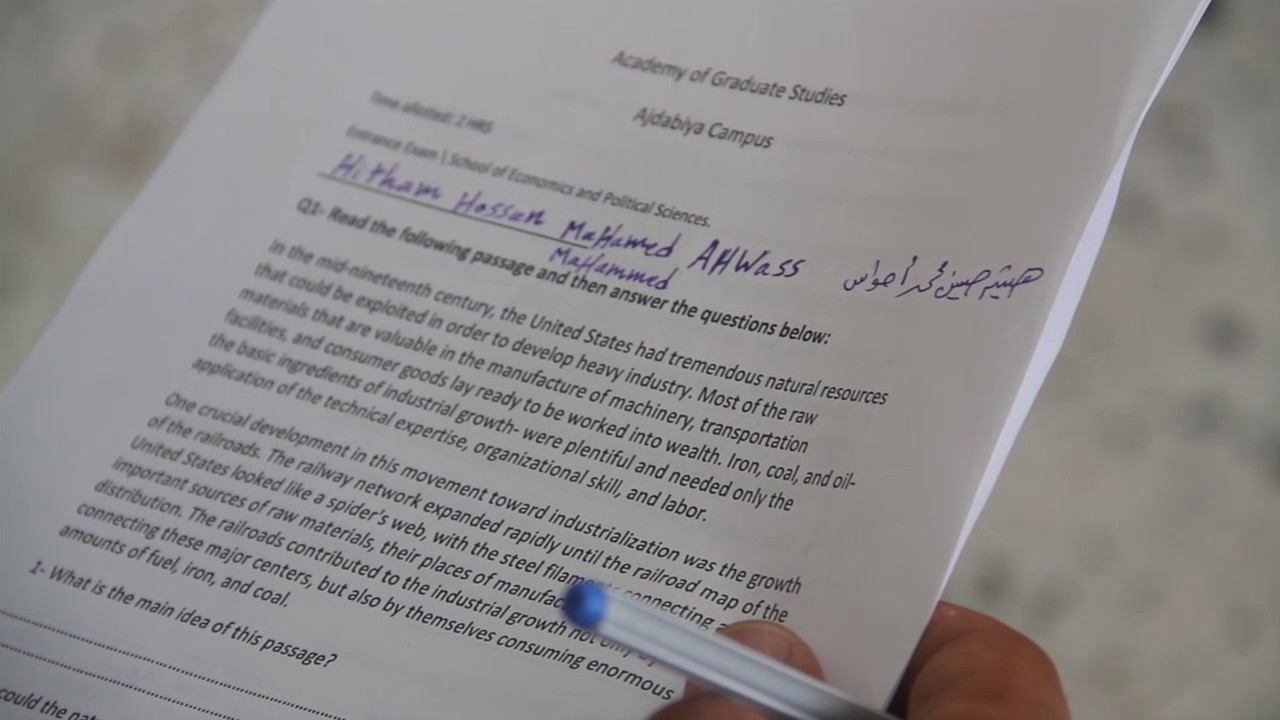 Academy of Graduate Studies
Ajdabiya Campus
Time allotted: 2 HRS
Entrance Exam \ School of Economics and Political Sciences.
Hitham Hossun MaHamed AHWass هيثم حسين محمد أحواس
MaHammed
Q1- Read the following passage and then answer the questions below:
In the mid-nineteenth century, the United States had tremendous natural resources
that could be exploited in order to develop heavy industry. Most of the raw
materials that are valuable in the manufacture of machinery, transportation
facilities, and consumer goods lay ready to be worked into wealth. Iron, coal, and oil-
the basic ingredients of industrial growth- were plentiful and needed only the
application of the technical expertise, organizational skill, and labor.
One crucial development in this movement toward industrialization was the growth
of the railroads. The railway network expanded rapidly until the railroad map of the
United States looked like a spider's web, with the steel filaments connecting
important sources of raw materials, their places of manufac
distribution. The railroads contributed to the industrial growth not only by
connecting these major centers, but also by themselves consuming enormous
amounts of fuel, iron, and coal.
1- What is the main idea of this passage?
could the